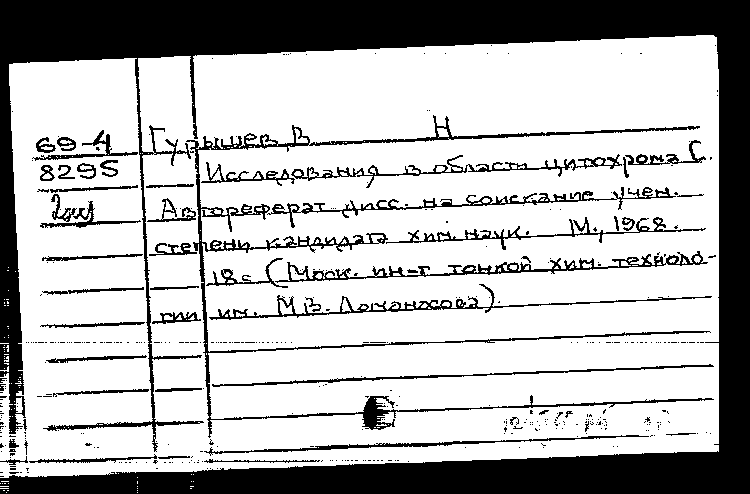 69-4 Гурышев, В Н
8295 Исследования в области цитохрома С.
2 экз Автореферат дисс. на соискание учен.
степени кандидата хим. наук. М., 1968.
18 с (Моск. ин-т тонкой хим. техноло-
гии им. М.В. Ломоносова).